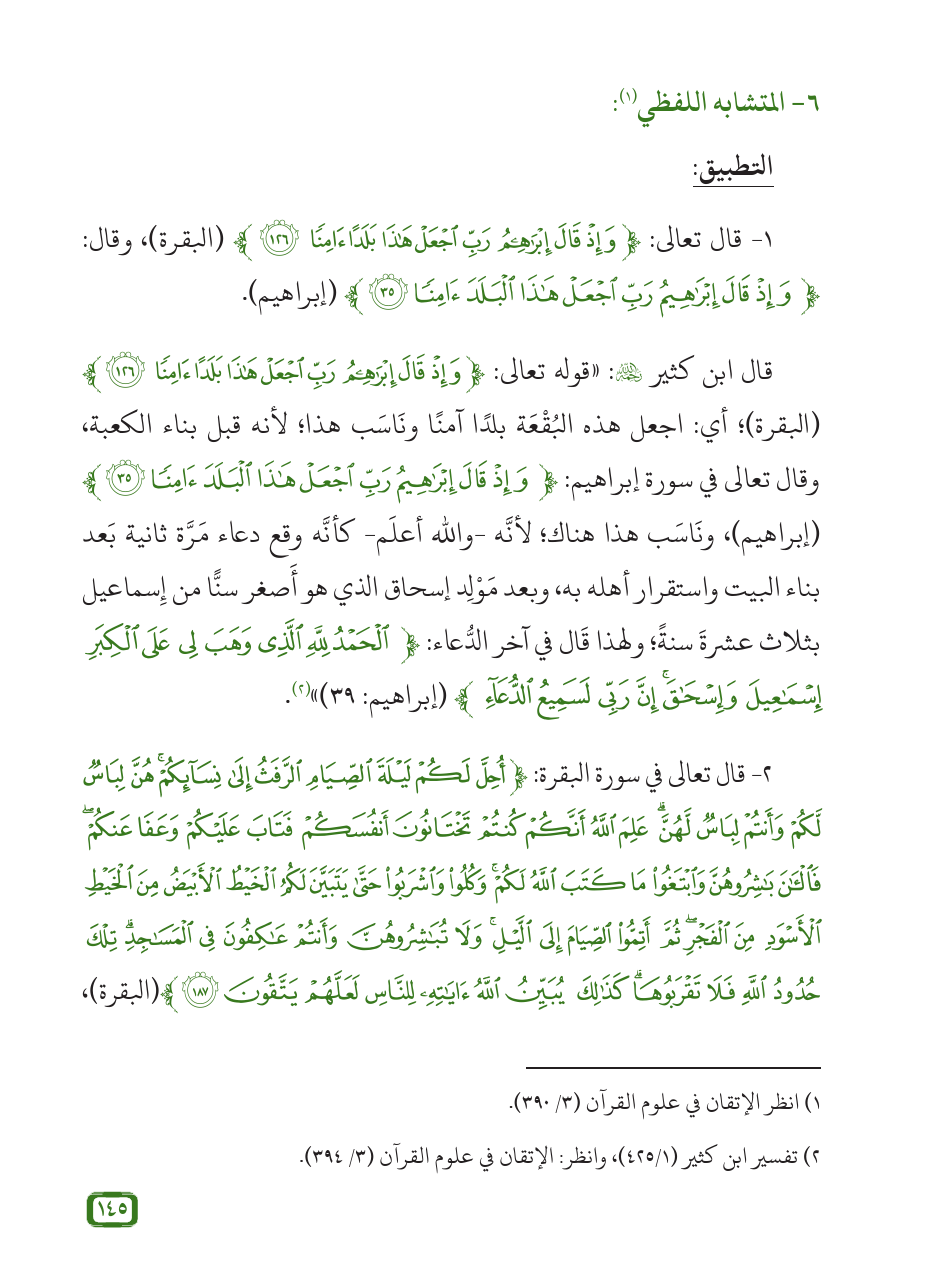 ٦- المتشابه اللفظي(١):
التطبيق:
١- قال تعالى: ﴿ وَإِذْ قَالَ إِبْرَٰهِـۧمُ رَبِّ ٱجْعَلْ هَٰذَا بَلَدًا ءَامِنًا ١٢٦ ﴾ (البقرة)، وقال:
﴿ وَإِذْ قَالَ إِبْرَٰهِيمُ رَبِّ ٱجْعَلْ هَٰذَا ٱلْبَلَدَ ءَامِنًا ٣٥ ﴾ (إبراهيم).
قال ابن كثير رحمه الله: «قوله تعالى: ﴿ وَإِذْ قَالَ إِبْرَٰهِـۧمُ رَبِّ ٱجْعَلْ هَٰذَا بَلَدًا ءَامِنًا ١٢٦ ﴾
(البقرة)؛ أي: اجعل هذه البُقْعَة بلدًا آمنًا ونَاسَب هذا؛ لأنه قبل بناء الكعبة،
وقال تعالى في سورة إبراهيم: ﴿ وَإِذْ قَالَ إِبْرَٰهِيمُ رَبِّ ٱجْعَلْ هَٰذَا ٱلْبَلَدَ ءَامِنًا ٣٥ ﴾
(إبراهيم)، ونَاسَب هذا هناك؛ لأنَّه -والله أعلَم- كأنَّه وقع دعاء مَرَّة ثانية بَعد
بناء البيت واستقرار أهله به، وبعد مَوْلِد إسحاق الذي هو أَصغر سنًّا من إِسماعيل
بثلاث عشرةَ سنةً؛ ولهذا قَال في آخر الدُّعاء: ﴿ ٱلْحَمْدُ لِلَّهِ ٱلَّذِى وَهَبَ لِى عَلَى ٱلْكِبَرِ
إِسْمَٰعِيلَ وَإِسْحَٰقَ ۚ إِنَّ رَبِّى لَسَمِيعُ ٱلدُّعَآءِ ﴾ (إبراهيم: ٣٩)»(٢).
٢- قال تعالى في سورة البقرة: ﴿ أُحِلَّ لَكُمْ لَيْلَةَ ٱلصِّيَامِ ٱلرَّفَثُ إِلَىٰ نِسَآئِكُمْ ۚ هُنَّ لِبَاسٌ
لَّكُمْ وَأَنتُمْ لِبَاسٌ لَّهُنَّ ۗ عَلِمَ ٱللَّهُ أَنَّكُمْ كُنتُمْ تَخْتَانُونَ أَنفُسَكُمْ فَتَابَ عَلَيْكُمْ وَعَفَا عَنكُمْ ۖ
فَٱلْـَٰٔنَ بَٰشِرُوهُنَّ وَٱبْتَغُوا۟ مَا كَتَبَ ٱللَّهُ لَكُمْ ۚ وَكُلُوا۟ وَٱشْرَبُوا۟ حَتَّىٰ يَتَبَيَّنَ لَكُمُ ٱلْخَيْطُ ٱلْأَبْيَضُ مِنَ ٱلْخَيْطِ
ٱلْأَسْوَدِ مِنَ ٱلْفَجْرِ ۖ ثُمَّ أَتِمُّوا۟ ٱلصِّيَامَ إِلَى ٱلَّيْلِ ۚ وَلَا تُبَٰشِرُوهُنَّ وَأَنتُمْ عَٰكِفُونَ فِى ٱلْمَسَٰجِدِ ۗ تِلْكَ
حُدُودُ ٱللَّهِ فَلَا تَقْرَبُوهَا ۗ كَذَٰلِكَ يُبَيِّنُ ٱللَّهُ ءَايَٰتِهِۦ لِلنَّاسِ لَعَلَّهُمْ يَتَّقُونَ ١٨٧ ﴾ (البقرة)،
١) انظر الإتقان في علوم القرآن (٣/ ٣٩٠).
٢) تفسير ابن كثير (٤٢٥/١)، وانظر: الإتقان في علوم القرآن (٣/ ٣٩٤).
١٤٥